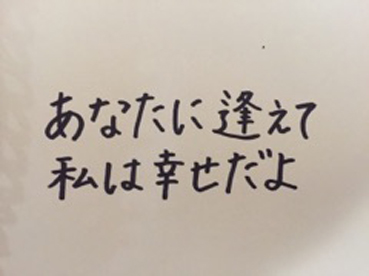 あなたに逢えて
私は幸せだよ